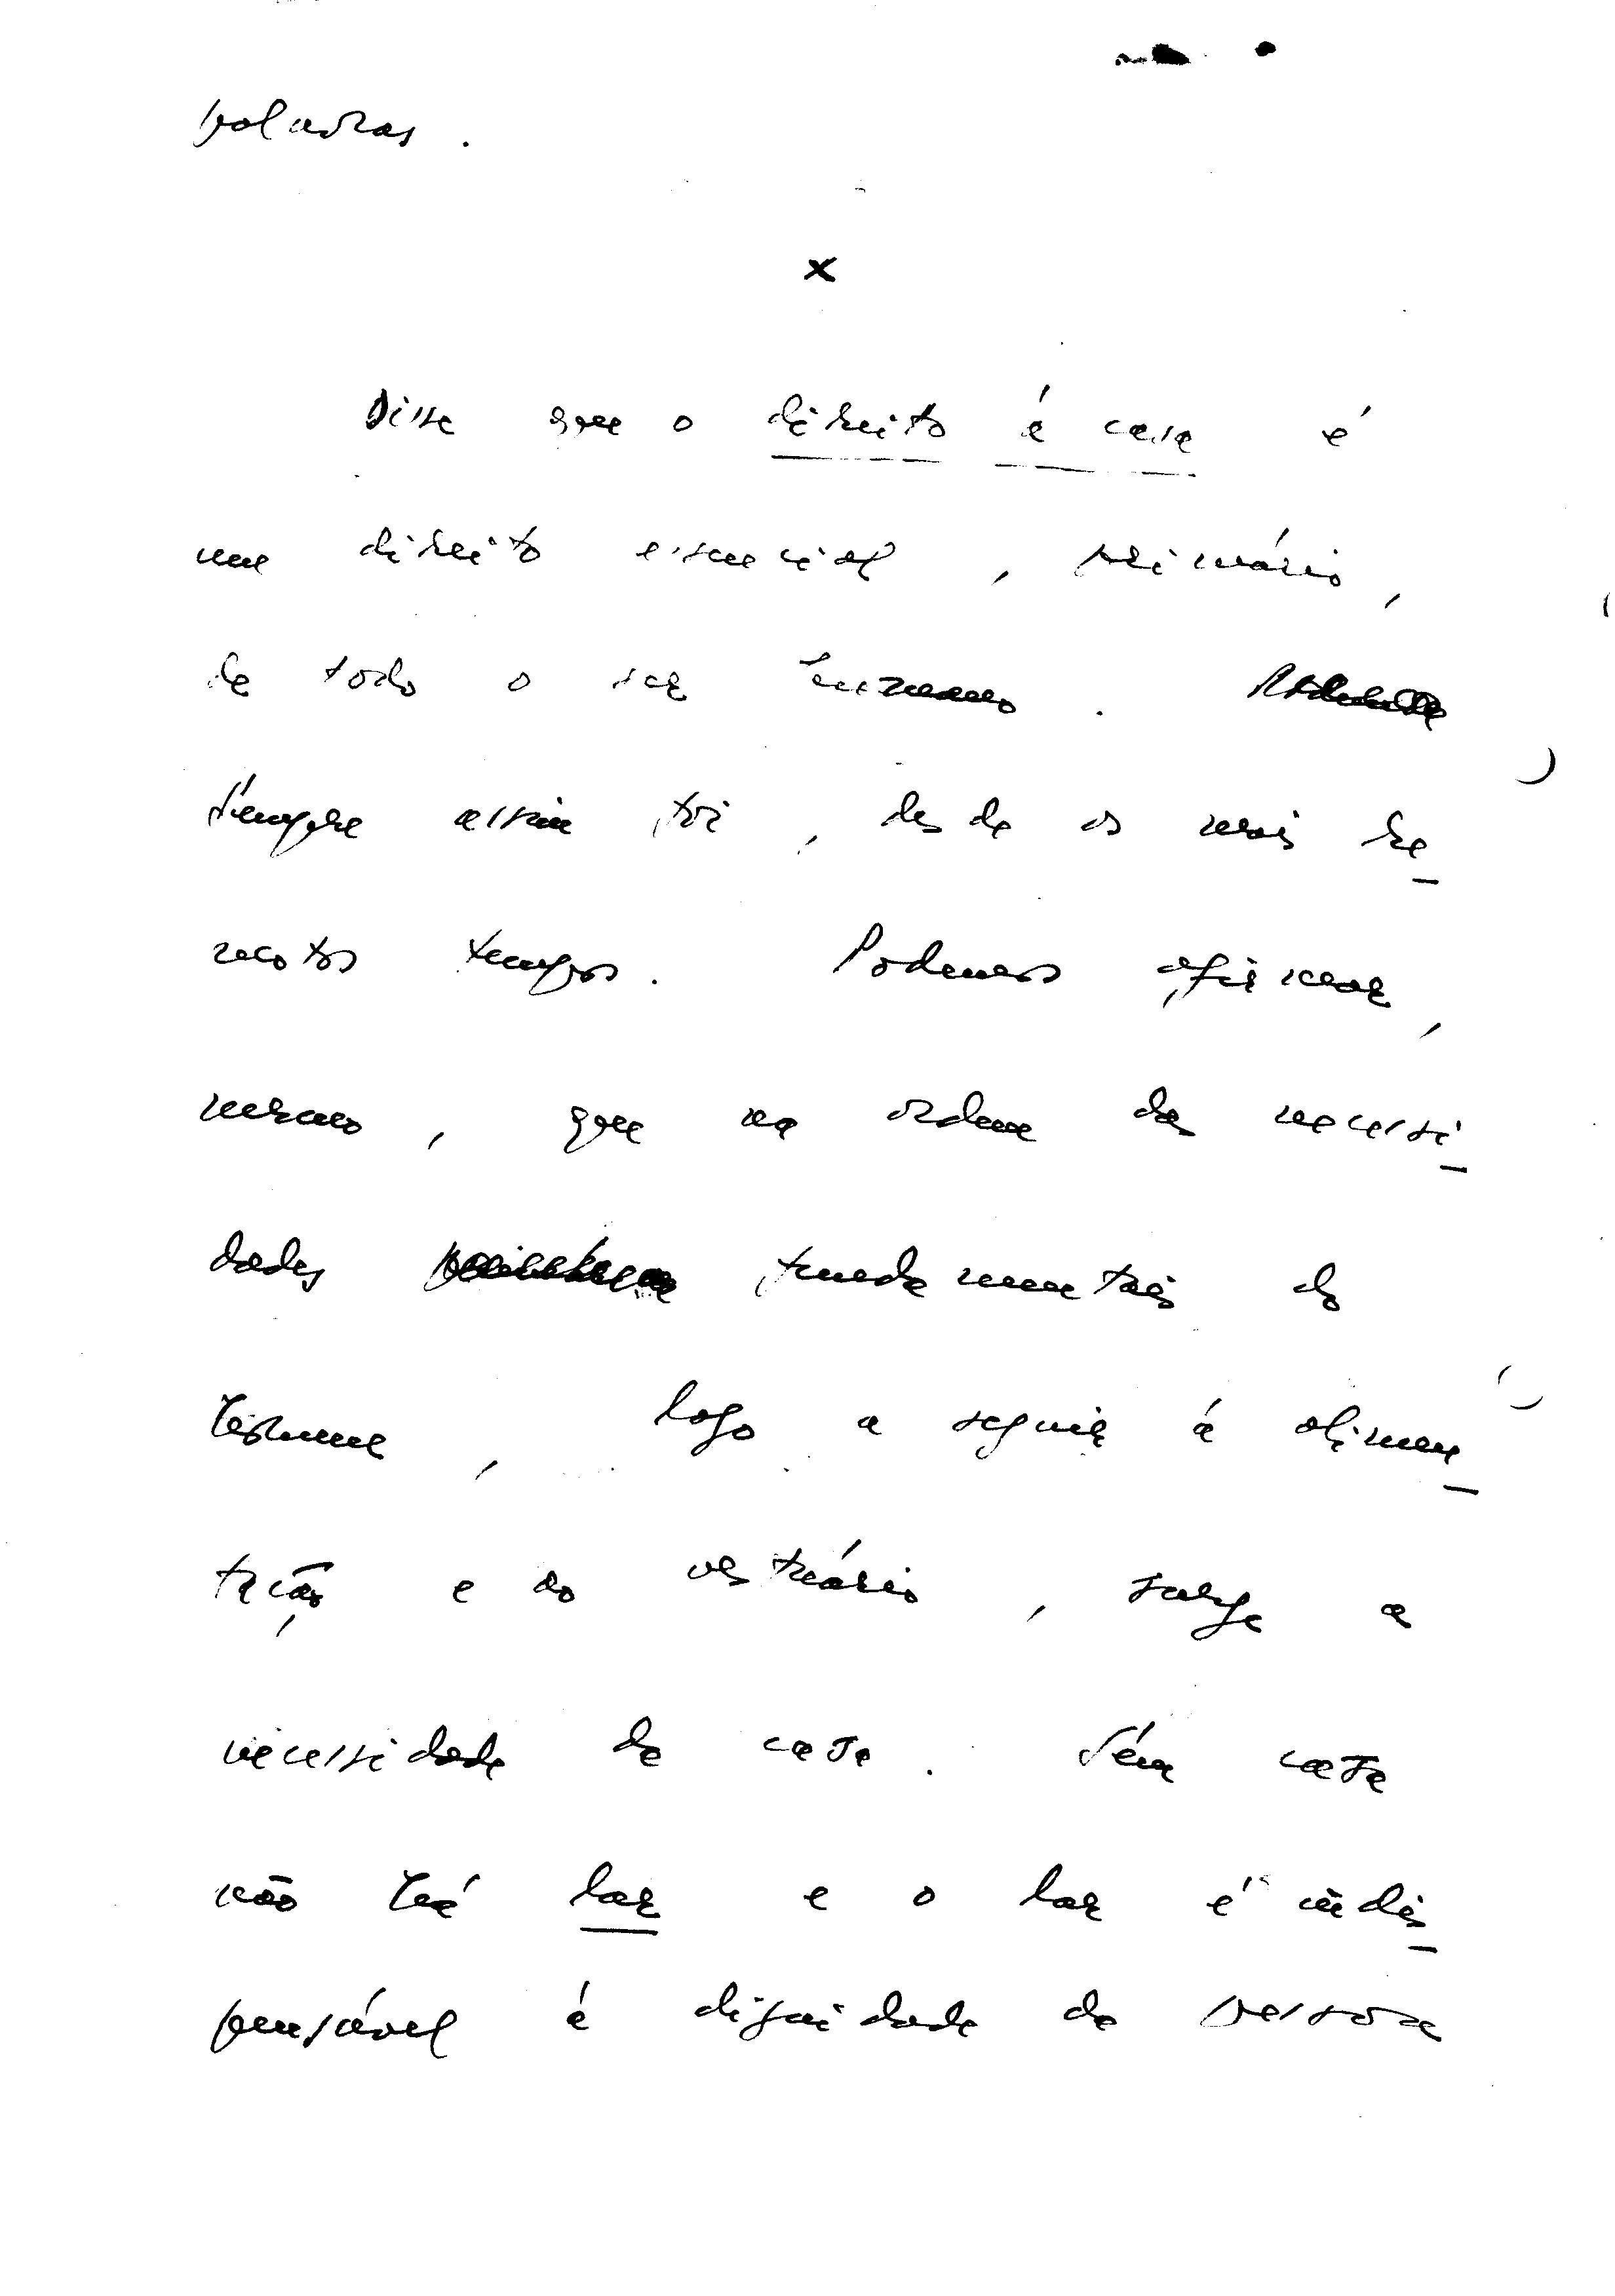 palavras.
x
Disse que o direito à casa é
um direito essencial, primário,
de todo o ser humano.
Sempre assim foi, desde os mais re-
motos tempos. Podemos afirmar,
mesmo, que na ordem das necessi-
dades fundamentais do
homem, logo a seguir à alimen-
tação e ao vestuário, surge a
necessidade de casa. Sem casa
não há lar e o lar é indis-
pensável à dignidade da pessoa